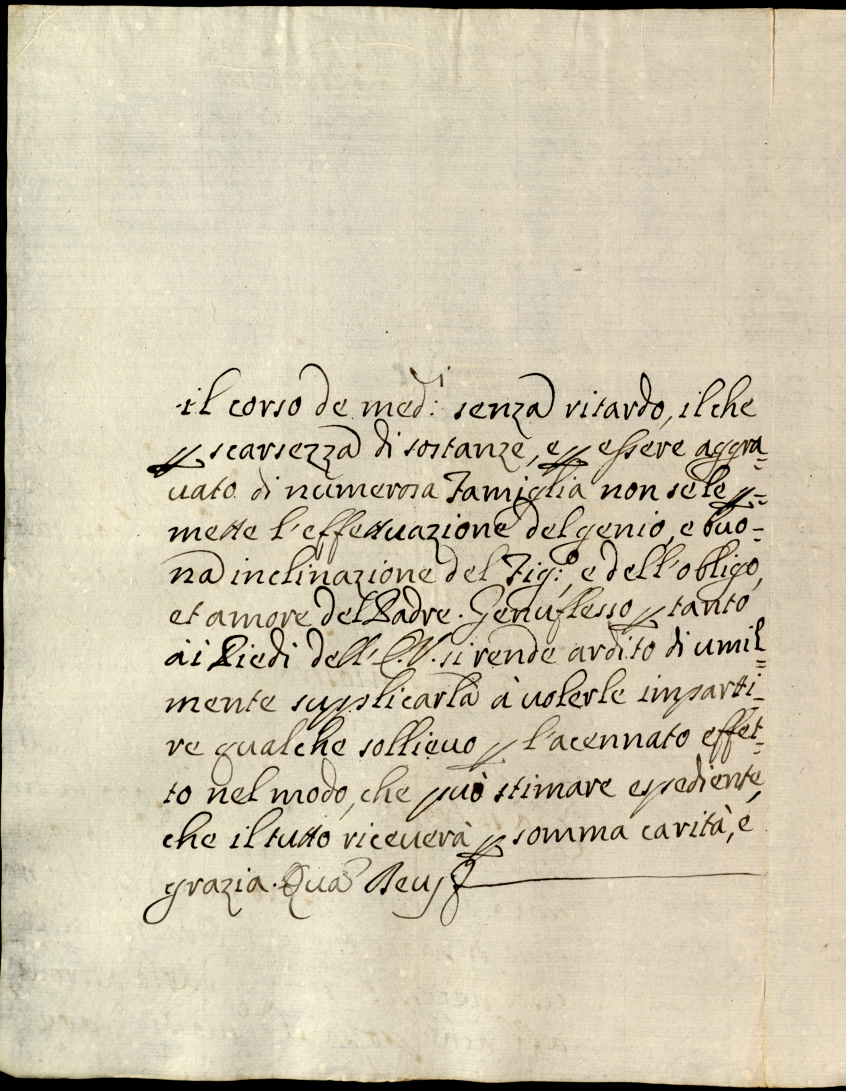 il corso de med.i senza ritardo, il che
p scarsezza di sostanze, e p essere aggra=
uato di numerosa Famiglia non se le p=
mette l'effettuazione del genio, e buo=
na inclinazione del Fig.o, e dell'obligo,
et amore del Padre. Genuflesso p tanto
ài Piedi dell'E.V. si rende ardito di umil=
mente supplicarla à volerle imparti=
re qualche sollieuo p l'acennato effet=
to nel modo, che può stimare espediente,
che il tutto riceuerà p somma carità, e
grazia. Qua Deus